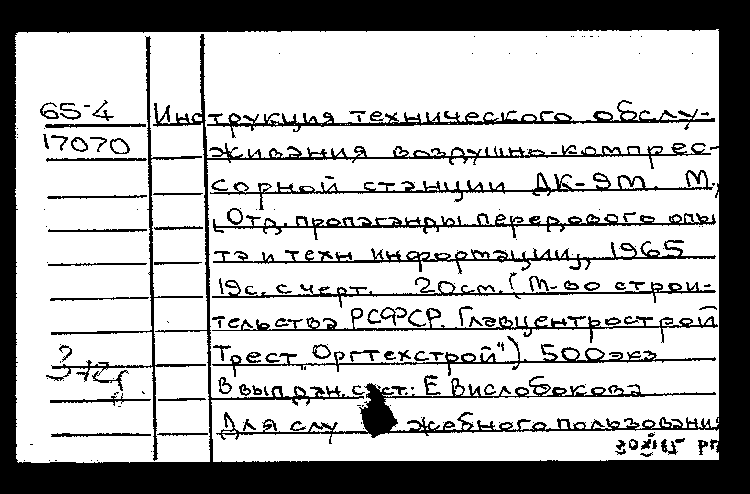 65-4 Инструкция технического обслу-
17070 живания воздушно-компрес-
сорной станции ДК-9М. М.,
[Отд. пропаганды передового опы
та и техн информации], 1965
19с. с черт. 20см. (М-во строи-
тельства РСФСР. Главцентрострой
Трест "Оргтехстрой"). 500экз
В вып. дан. сост.: Е Вислобокова
Для служебного пользования